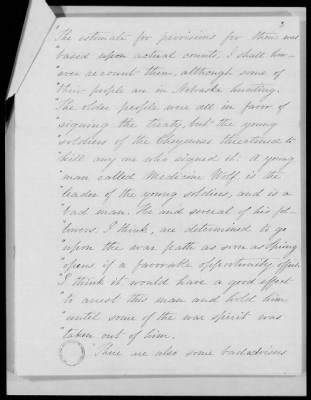 2
"The estimate for provisions for them was
"based upon actual counts, I shall how-
"ever recount them, although some of
"their people are in Nebraska hunting.
"The older people were all in favor of
"signing the treaty, but the young
"soldiers of the Cheyennes threatened to
"kill any one who signed it: A young
"man called Medicine Wolf, is the
"leader of the young soldiers, and is a
"bad man. He and several of his fol-
"lowers, I think, are determined to go
"upon the war path as soon as Spring
"opens if a favorable opportunity offers.
"I think it would have a good effect
"to arrest this man and hold him
"until some of the war spirit was
"taken out of him.
"There are also some bad advisers